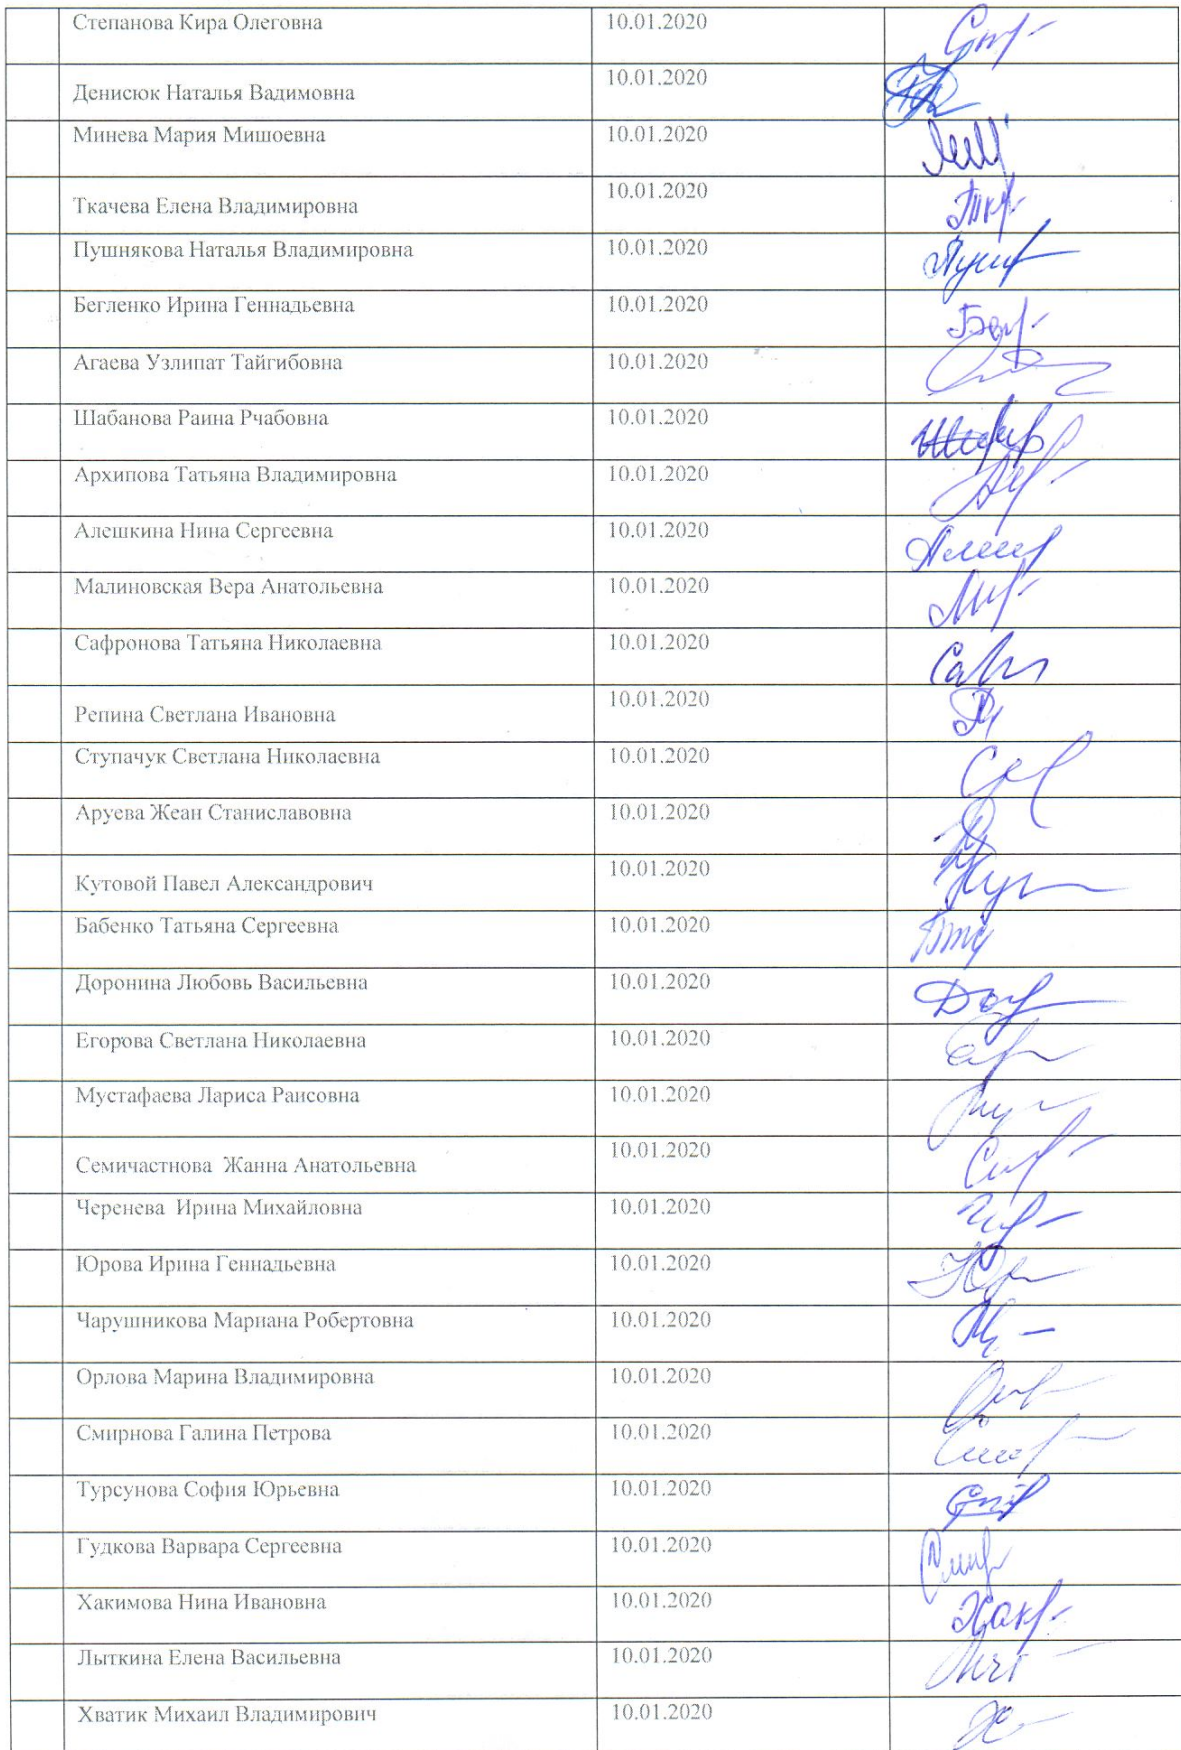 Степанова Кира Олеговна 10.01.2020
Денисюк Наталья Вадимовна 10.01.2020
Минева Мария Мишоевна 10.01.2020
Ткачева Елена Владимировна 10.01.2020
Пушнякова Наталья Владимировна 10.01.2020
Бегленко Ирина Геннадьевна 10.01.2020
Агаева Узлипат Тайгибовна 10.01.2020
Шабанова Раина Рчабовна 10.01.2020
Архипова Татьяна Владимировна 10.01.2020
Алешкина Нина Сергеевна 10.01.2020
Малиновская Вера Анатольевна 10.01.2020
Сафронова Татьяна Николаевна 10.01.2020
Репина Светлана Ивановна 10.01.2020
Ступачук Светлана Николаевна 10.01.2020
Аруева Жеан Станиславовна 10.01.2020
Кутовой Павел Александрович 10.01.2020
Бабенко Татьяна Сергеевна 10.01.2020
Доронина Любовь Васильевна 10.01.2020
Егорова Светлана Николаевна 10.01.2020
Мустафаева Лариса Раисовна 10.01.2020
Семичастнова Жанна Анатольевна 10.01.2020
Черенева Ирина Михайловна 10.01.2020
Юрова Ирина Геннадьевна 10.01.2020
Чарушникова Мариана Робертовна 10.01.2020
Орлова Марина Владимировна 10.01.2020
Смирнова Галина Петрова 10.01.2020
Турсунова София Юрьевна 10.01.2020
Гудкова Варвара Сергеевна 10.01.2020
Хакимова Нина Ивановна 10.01.2020
Лыткина Елена Васильевна 10.01.2020
Хватик Михаил Владимирович 10.01.2020